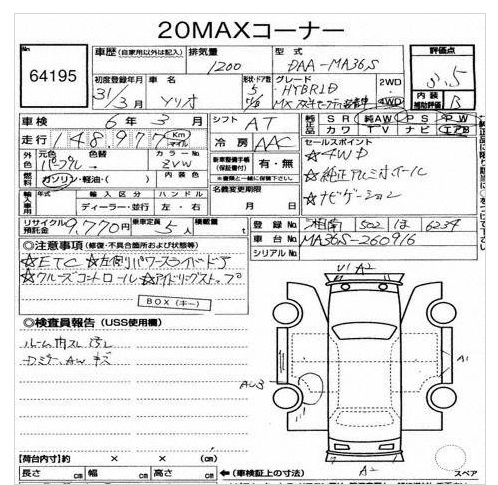 20MAXコーナー
No.
64195
車歴 (自家用以外は記入) 排気量 型式 評価点
1200 DAA-MA36S 3.5
初度登録年月 車名 形状・ドア数 グレード 2WD
31/3月 5 HYBRID MX 4WD
内装 補助評価 B
車検 6年3月 シフト AT
純正品 SR 純AW PS PW
カワ TV ナビ エアB
走行 148,977 Km マイル 冷房 AAC
セールスポイント
☆4WD
☆純正アルミホイール
☆ナビゲーション
外色 元色 色替 カラーNo. ZVW
パープル
新車整備手帳(保証書付) 有・無
燃料 ガソリン・軽油・( ) 内装色
名義変更期限 月 日
輸入車用 年式 輸入区分 ハンドル
ディーラー・並行 左・右
リサイクル預託金 9,770円 乗車定員 5人 積載量
登録No. 湘南 502 ほ 6234
車台No. MA36S-260916
シリアルNo.
◎注意事項 (修復・不具合箇所および状態等)
☆ETC ☆左側パワースライドドア
☆クルーズコントロール ☆アイドリングストップ
BOX(キー)
◎検査員報告 (USS使用欄)
ルーム内スレ 汚レ
AW キズ
V1 A2
AU3
A1
A2
スペア
【荷台内寸】 約 × × (cm)
←(車検証上の寸法)
長さ cm 幅 cm 高さ cm